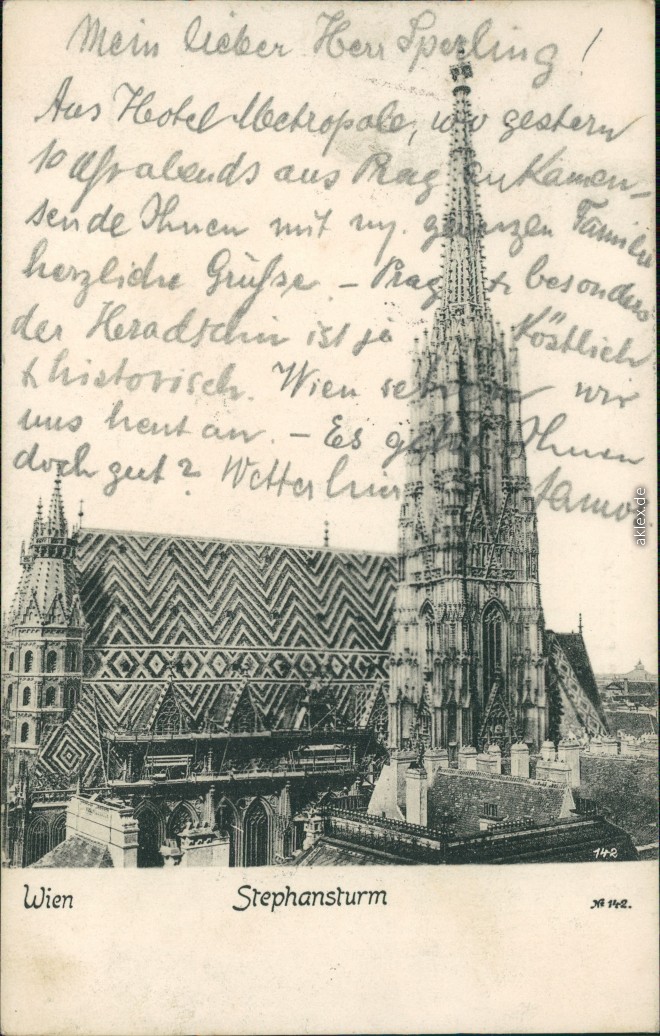 Mein lieber Herr Sperling!
Aus Hotel Metropole, wo gestern
10 Uhr abends aus Prag zu kamen –
sende Ihnen mit m. ganzen Familie
herzliche Grüße. – Prag & besonders
der Hradschin ist ja köstlich
& historisch. Wien sehen wir
uns heut an. – Es geht Ihnen
doch gut? Wetter hier famos.
aklex.de
142
Wien Stephansturm № 142.